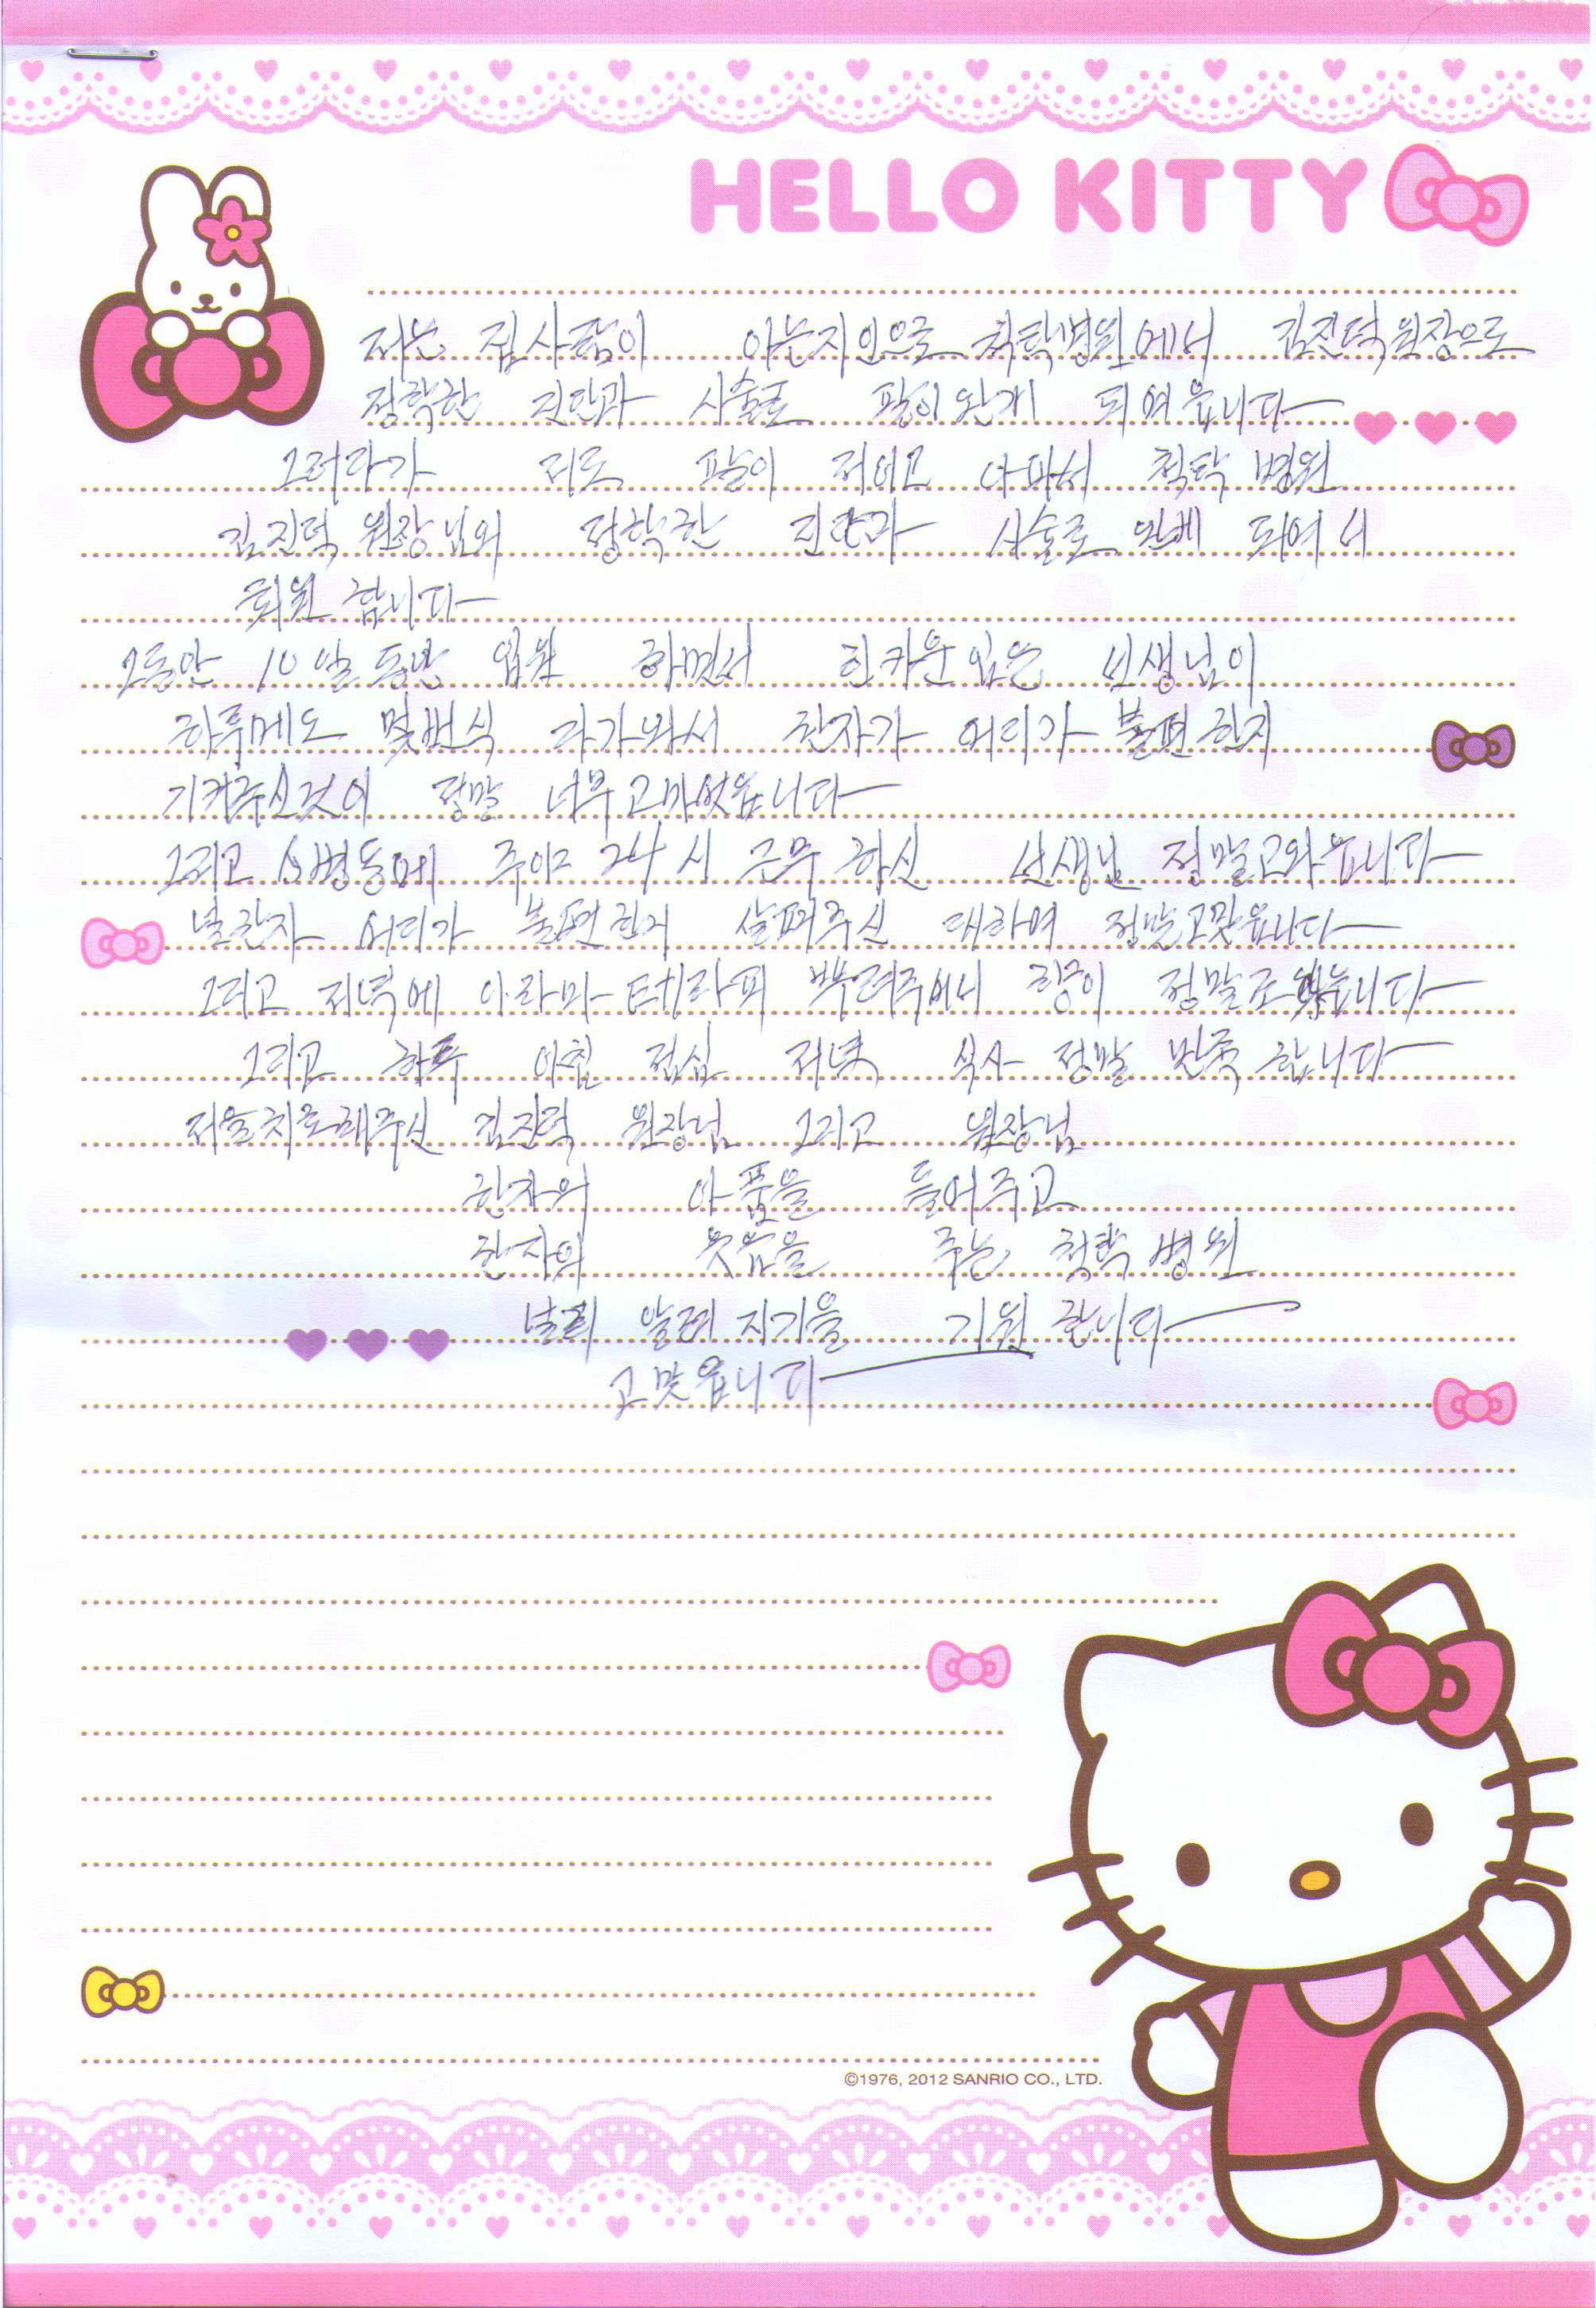 HELLO KITTY
저는 집사람이 아는지인으로 척탁병원에서 김진덕원장으로
정확한 진단과 시술로 팔이완개 되여읍니다
그러다가 저도 팔이 저이고 아파서 척탁 병원
김진덕 원장님의 정확한 진단과 시술로 완쾌 되여서
퇴원 합니다
그동안 10일동안 입원 하면서 한카운입은 선생님이
하루에도 몇번식 다가와서 환자가 어디가 불편한지
기켜주신것이 정말 너무고마웠읍니다
그리고 병동에 주야 24시 근무 하신 선생님 정말고와읍니다
환자 어디가 불편한지 살펴주신 대하여 정말고맞읍니다
그리고 저녁에 아라마 테라피 뿌려주어니 향이 정말로 니다
그리고 하루 아침 점심 저녁 식사 정말 만족 합니다
저을치료해주신 김진덕 원장님 그리고 원장님
환자의 아품을 들어주고
환자의 웃음을 주는 척탁 병원
널리 알려 지기을 기원 합니다
고맞읍니다
©1976, 2012 SANRIO CO., LTD.